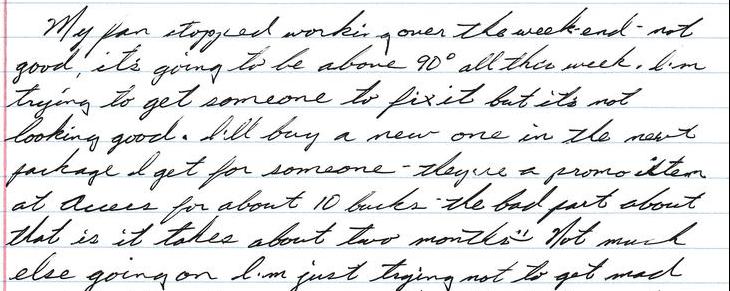 My fan stopped working over the week-end - not
good, it's going to be above 90° all this week. I'm
trying to get someone to fix it but it's not
looking good. I'll buy a new one in the next
package I get for someone - they're a promo item
at Access for about 10 bucks - the bad part about
that is it takes about two months" Not much
else going on I'm just trying not to get mad